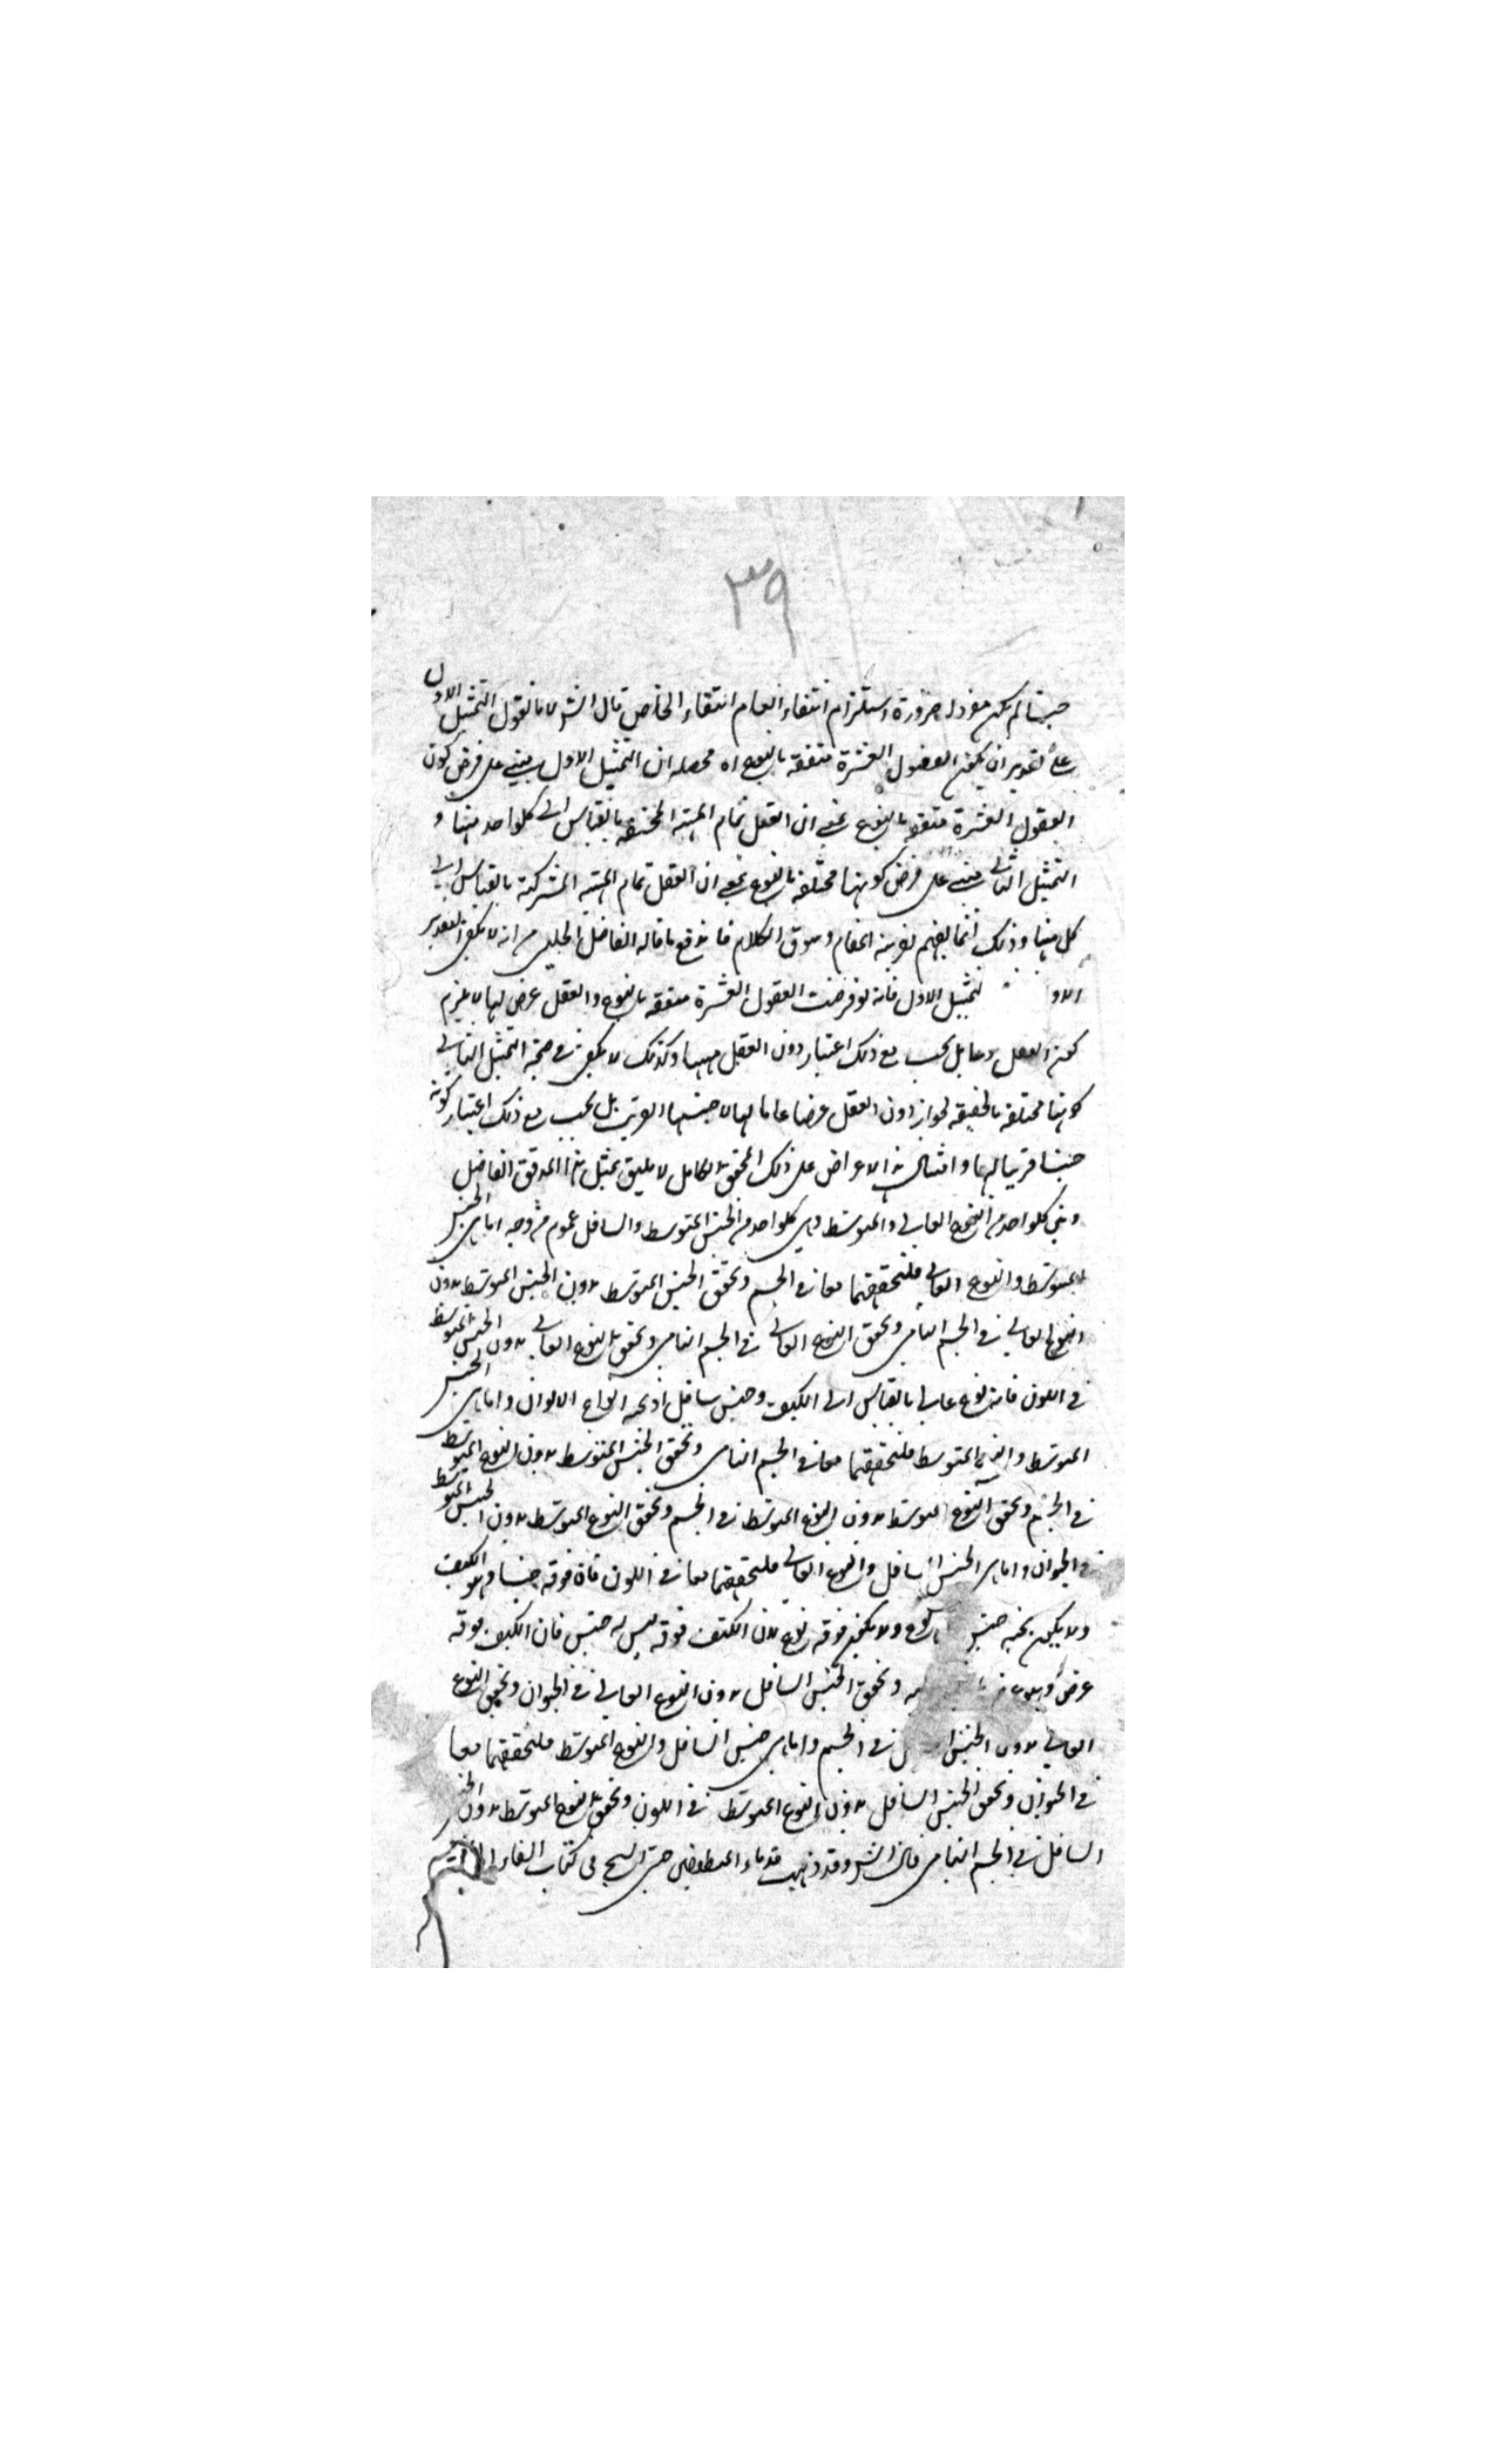 ٣٩
جنسا لم يكن مفردا ضرورة استلزام انتفاء العام انتفاء الخاص قال الش لانا نقول التمثيل الاول
على تقدير ان يكون العقول العشرة متفقة بالنوع اه محصله ان التمثيل الاول مبنى على فرض كون
العقول العشرة متفقة بالنوع بمعنى ان العقل تمام المهية المختصة بالقياس الى كلواحد منها و
التمثيل الثانى مبنى على فرض كونها مختلفة بالنوع بمعنى ان العقل تمام المهية المشتركة بالقياس الى
كل منها وذلك انما يفهم بقرينة المقام وسوق الكلام فاندفع ما قاله الفاضل الجليل من انه لا يكفى التقدير
الاو لتمثيل الاول فانه لو فرضت العقول العشرة متفقة بالنوع والعقل عرض لها لا يلزم
كون العقل بل يجب مع ذلك اعتبار دون العقل وكذلك لا يكفى فى صحة التمثيل الثانى
كونها مختلفة بالحقيقة لجواز كون العقل عرضا عاما لها لا جنسها القريب بل يجب مع ذلك اعتبار كونه
جنسا قريبا لها وامثال هذا الاعراض على ذلك المحقق الكامل لا يليق بمثل هذا المدقق الفاضل
وبين كلواحد من النوع العالى والمتوسط وبين كلواحد من الجنس المتوسط والسافل عموم من وجه اما بين الجنس
المتوسط والنوع العالى فلتحققهما معا فى الجسم وتحقق الجنس المتوسط بدون الجنس المتوسط بدون
النوع العالى فى الجسم النامى وتحقق النوع العالى فى الجسم النامى وتحقق النوع العالى بدون الجنس المتوسط
فى اللون فانه نوع عالى بالقياس الى الكيف وجنس سافل اذ تحته انواع الالوان واما بين الجنس
المتوسط والنوع المتوسط فلتحققهما معا فى الجسم النامى وتحقق الجنس المتوسط بدون النوع المتوسط
فى الجسم وتحقق النوع المتوسط بدون النوع المتوسط فى الجسم وتحقق النوع المتوسط بدون الجنس المتوسط
فى الحيوان واما بين الجنس السافل والنوع العالى فلتحققهما معا فى اللون فان فوقه جنسا وهو الكيف
ولا يكون تحته جنس بل نوع ولا يكون فوقه نوع لان الكيف فوقه ليس له جنس فان الكيف فوقه
عرض وتحقق الجنس السافل بدون النوع العالى فى الحيوان وتحقق النوع
العالى بدون الجنس فى الجسم واما بين جنس السافل والنوع المتوسط فلتحققهما معا
فى الحيوان وتحقق الجنس السافل بدون النوع المتوسط فى اللون وتحقق النوع المتوسط بدون الجنس
السافل فى الجسم النامى قال الش وقد ذهب قدماء المنطقيين حتى الشيخ فى كتاب الشفا